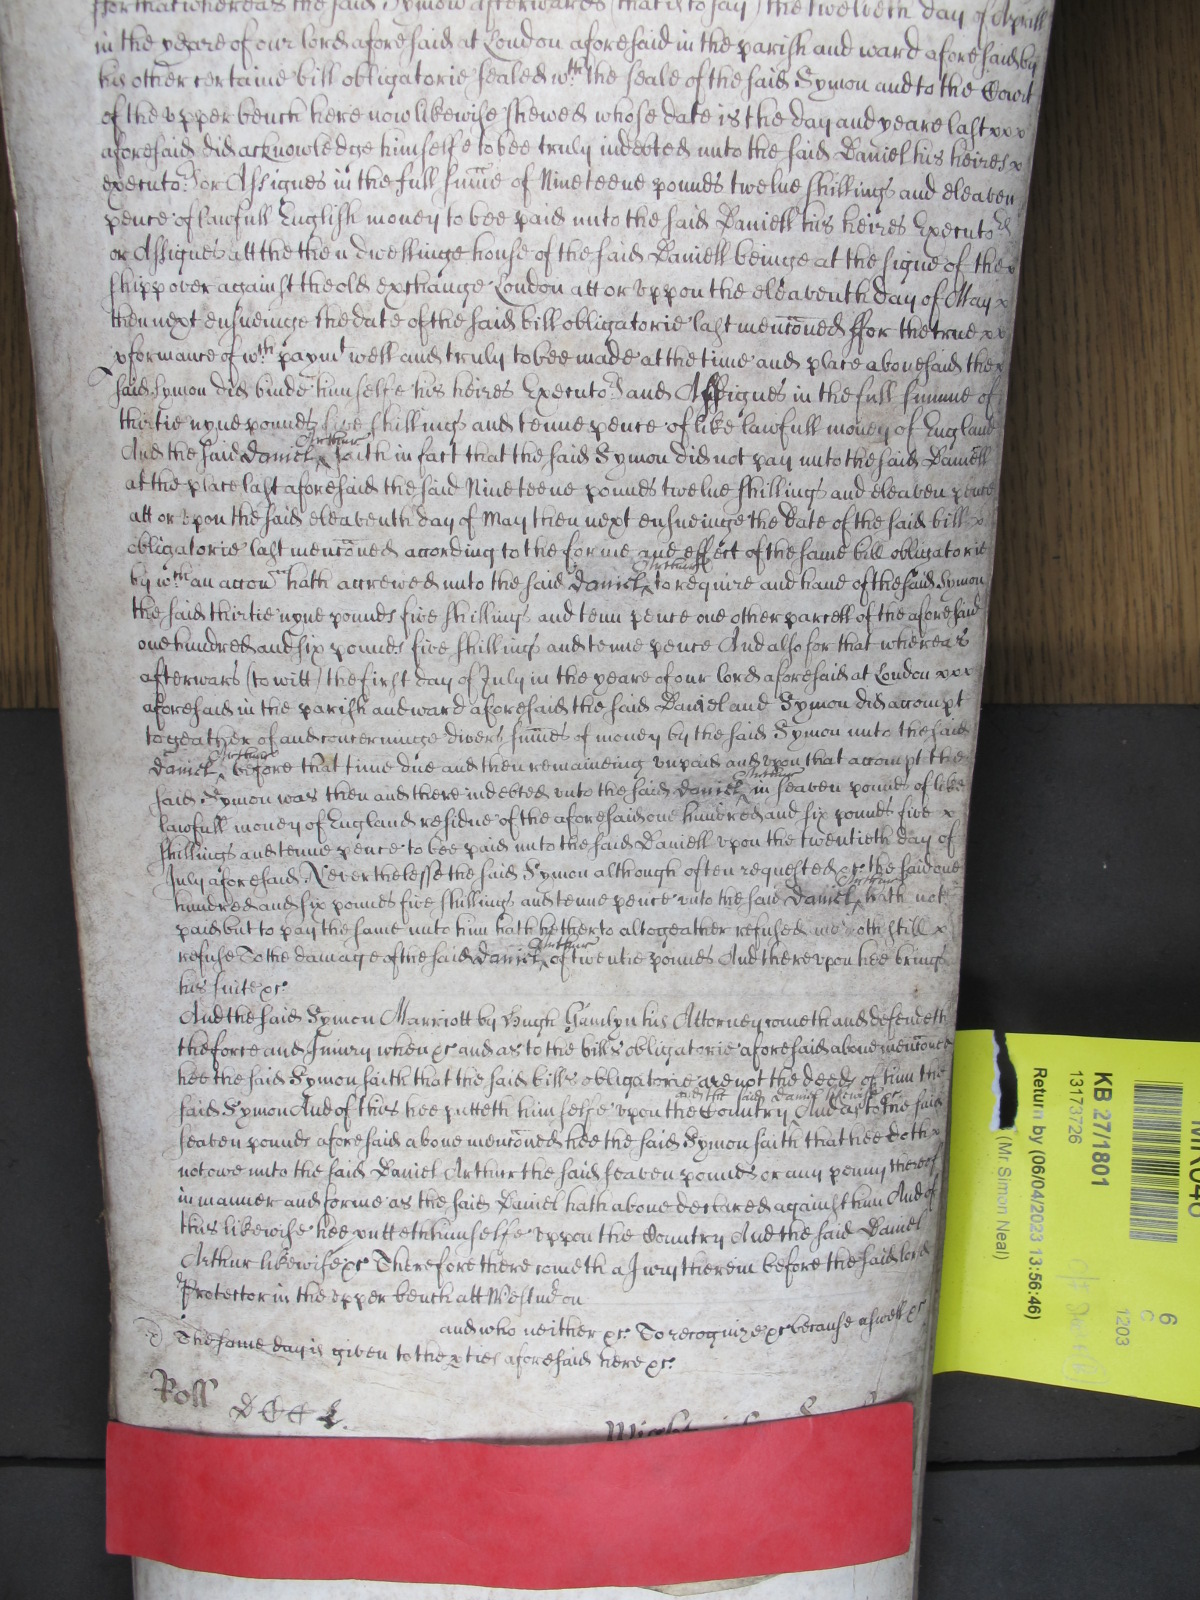 ffor that whereas the said Symon afterwards (that is to say) the twelveth day of Aprill
in the yeare of our lord aforesaid at London aforesaid in the parish and ward aforesaid by
his other certaine bill obligatorie sealed wth the seale of the said Symon and to the Court
of the vpper bench here now likewise shewed whose date is the day and yeare last xxx
aforesaid did acknowledge himselfe to bee truly indebted unto the said Daniel his heires x
executors or Assignes in the full sume of Nineteene pounds twelve shillings and eleaven
pence of lawfull English money to bee paid unto the said Daniell his heires Executors
or Assignes att the then dwellinge house of the said Daniell beinge at the signe of the x
shipp over against the old exchange London att or vppon the eleaventh day of May x
then next ensueinge the date of the said bill obligatorie last mencōned ffor the true xx
pformance of wch paymt well and truly to bee made at the time and place abovesaid the x
said Symon did binde himselfe his heires Executors and Assignes in the full summe of
thirtie nyne pounds five shillings and tenne pence of like lawfull money of England
And the said Daniel ^Arthur saith in fact that the said Symon did not pay unto the said Daniell
at the place last aforesaid the said Nineteene pounds twelve shillings and eleaven pence
att or vpon the said eleaventh day of May then next ensueinge the date of the said bill x
obligatorie last mencōned according to the forme and effect of the same bill obligatorie
by wch an accon hath accrewed unto the said Daniel ^Arthur to require and have of the said Symon
the said thirtie nyne pounds five shillings and tenn pence one other parcell of the aforesaid
one hundred and six pounds five shillings and tenne pence And also for that whereas
afterwars (to witt) the first day of July in the yeare of our lord aforesaid at London xxx
aforesaid in the parish and ward aforesaid the said Daniel and Symon did accompt
togeather of and concerninge divers sumes of money by the said Symon unto the said
Daniel ^Arthur before that time due and then remaineing vnpaid and vpon that accompt the
said Symon was then and there indebted vnto the said Daniel ^Arthur in seaven pounds of like
lawfull money of England residue of the aforesaid one hundred and six pounds five x
shillings and tenne pence to bee paid unto the said Daniell vpon the twentieth day of
July aforesaid Neverthelesse the said Symon although often requested &c the said one
hundred and six pounds five shillings and tenne pence vnto the said Daniel ^Arthur hath not
paid but to pay the same unto him hath hetherto altogeather refused and doth still x
refuse To the damage of the said Daniel ^Arthur of twentie pounds And therevpon hee brings
his suite &c
And the said Symon Marriott by Hugh Hamlyn his Attorney cometh and defendeth
the force and Iniury when &c and as to the bills obligatorie aforesaid above mencōned
hee the said Symon saith that the said bills obligatorie are not the deeds of him the
said Symon And of this hee putteth himselfe vpon the Country and the said Daniel likewise &c And as to the said
seaven pounds aforesaid above mencōned hee the said Symon saith that hee doth x
not owe unto the said Daniel Arthur the said seaven pounds or any penny thereof
in manner and forme as the said Daniel hath above declared against him And of
this likewise hee putteth himselfe vppon the Country And the said Daniel
Arthur likewise &c Therefore there cometh a Jury therein before the said lord
Protector in the vpper bench att Westmr on
and who neither &c To recognize &c because aswell &c
The same day is given to the pties aforesaid here &c
Roll
KB 27/1801
13173726
Return by (06/04/2023 13:56:46)
(Mr Simon Neal)
6
C
1203